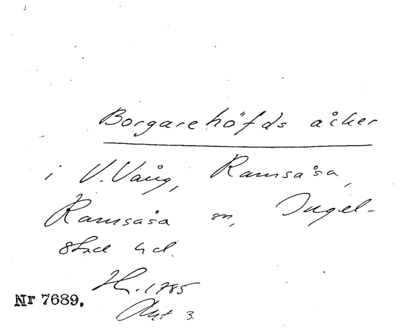 Borgarehöfds åker
i V. Vång, Ramsåsa,
Ramsåsa sn, Ingel-
stad hd.
Hr. 1785
Akt 3.
Nr 7689.